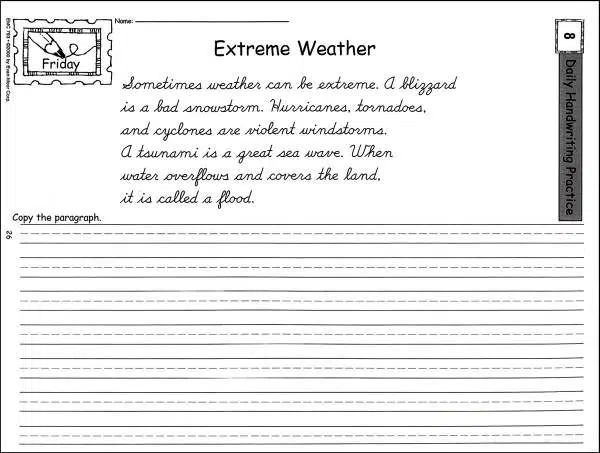 Name:
8
Friday
Extreme Weather
Sometimes weather can be extreme. A blizzard
is a bad snowstorm. Hurricanes, tornadoes,
and cyclones are violent windstorms.
A tsunami is a great sea wave. When
water overflows and covers the land,
it is called a flood.
Daily Handwriting Practice
Copy the paragraph.
26